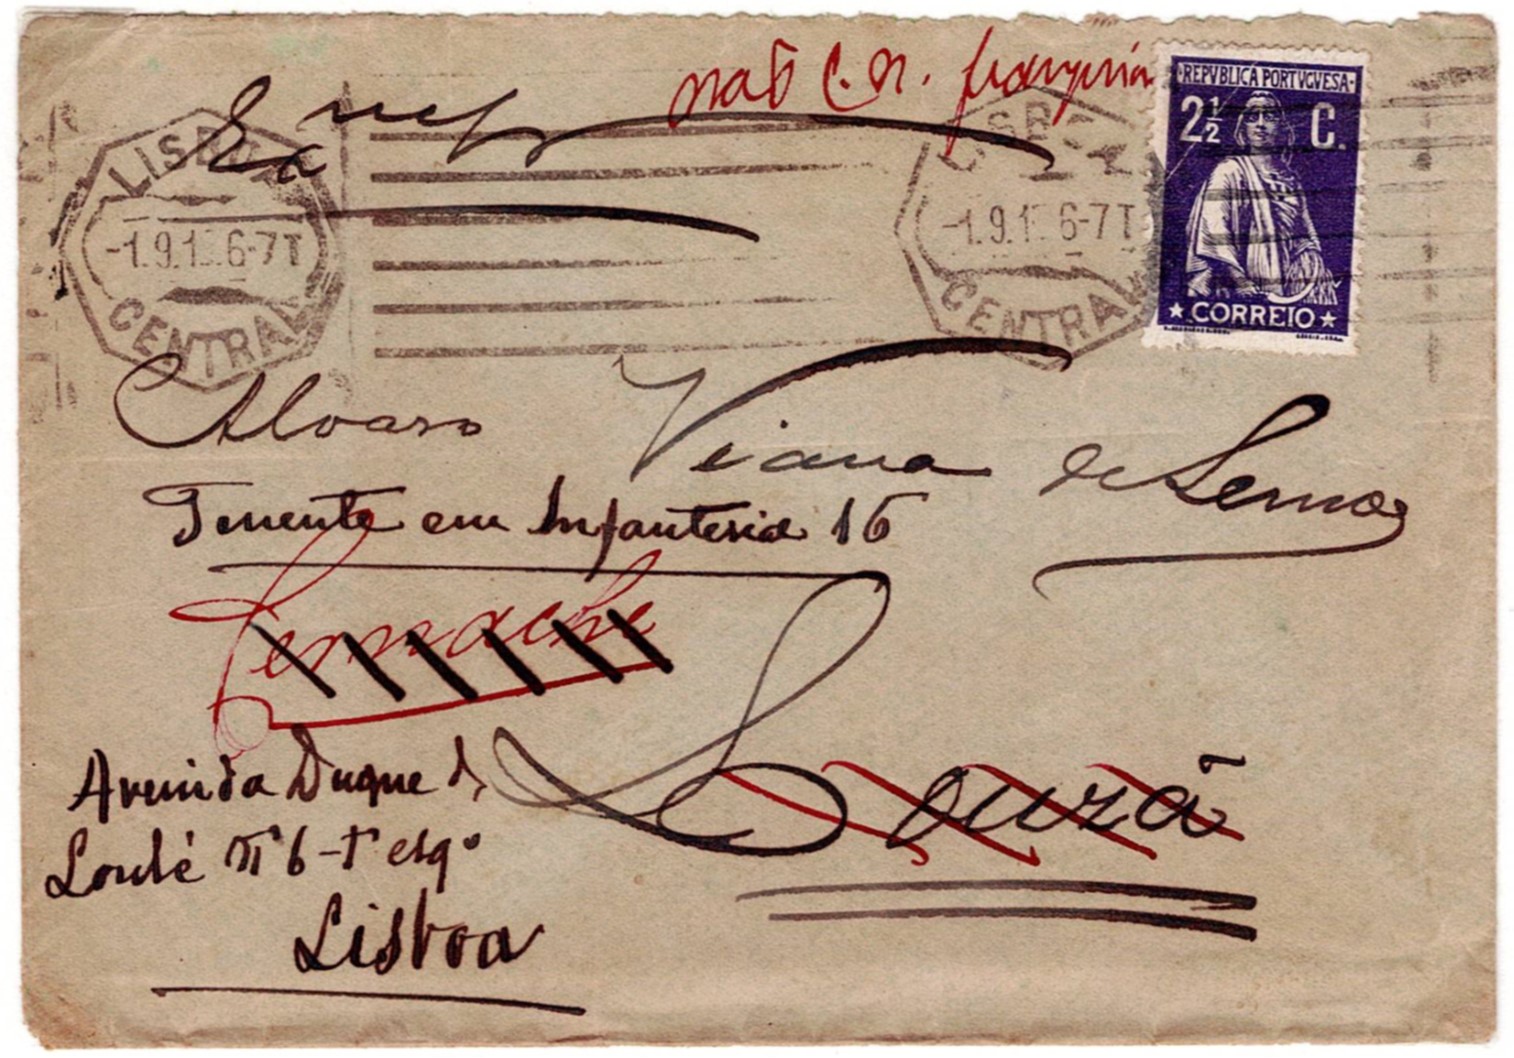 não C. N.
REPVBLICA PORTVGVESA
2½ C.
CORREIO
LISBOA
-1.9.1 6-7T
CENTRAL
LISBOA
-1.9.1 6-7T
CENTRAL
Alvaro Viana de Lemos
Tenente em Infanteria 16
Sernache
Louzã
Avenida Duque d
Loulé nº 6-1º esqº
Lisboa